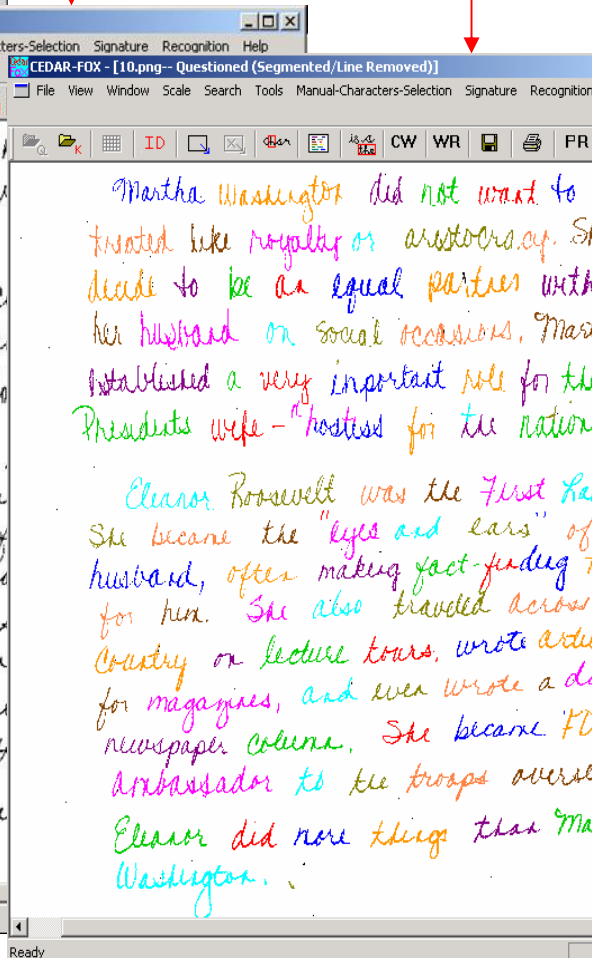 ters-Selection Signature Recognition Help
CEDAR-FOX - [10.png-- Questioned (Segmented/Line Removed)]
File View Window Scale Search Tools Manual-Characters-Selection Signature Recognition
Q K ID is a the CW WR PR
Martha Washington did not want to
treated like royalty or aristocracy. Sh
decide to be an equal partner with
her husband on social occasions. Mar
Established a very inportant role for the
Presidents wife - "hostess for the nation
Eleanor Roosevelt was the First La
She became the "eyes and ears" of
husband, often making fact-finding
for him. She also traveled across
Country on lecture tours, wrote artic
for magazines, and even wrote a da
newspaper column. She became FD
ambassador to the troops overse
Eleanor did more things than Ma
Washington.
Ready